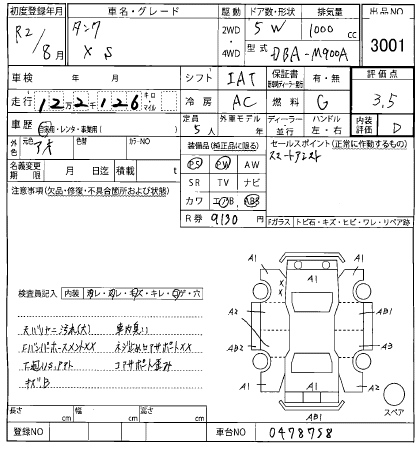 初度登録年月 車名・グレード 駆動 ドア数・形状 排気量 出品NO
R2/8月 タンク XS 2WD・4WD 5W 1000cc 3001
型式 DBA-M900A
車検 年 月 シフト IAT 保証書 有・無 評価点
走行 12万2千126 キロ マイル 冷房 AC 燃料 G 3.5
車歴 自家用・レンタ・事業用( ) 定員 5人 外車モデル 年 ディーラー・並行 ハンドル 左・右 内装評価 D
外色 元色 アオ 色替 カラーNO 装備品(純正品に限る) セールスポイント(正常に作動するもの)
名義変更期限 月 日迄 積載 t PS PW AW スマートアシスト
注意事項(欠品・修復・不具合箇所および状態) SR TV ナビ
カワ エアB ABS
R券 9130 Fガラス トビ石・キズ・ヒビ・ワレ・リペア跡
検査員記入 内装 ヨゴレ・スレ・キズ・キレ・コゲ・穴
天バリヤニ汚れ(大) 車内臭い
FバンパーホースメントXX
コアサポート歪み
下廻りS.
キズB
A1 A1 A1
A2 AB1
A1
AB2 A3
A2 A2
A1 A1 A1
AB1 スペア
長さ cm 幅 cm 高さ cm
登録NO 車台NO 0478758